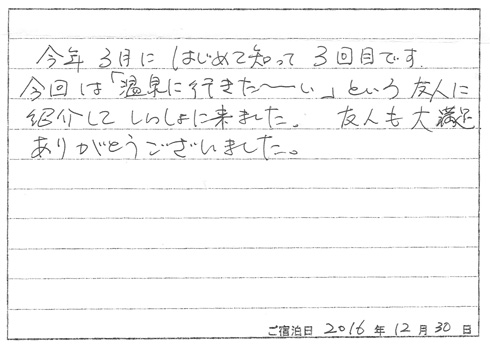 今年3月にはじめて知って3回目です。
今回は「温泉に行きた〜〜い」という友人に
紹介していっしょに来ました。 友人も大満足
ありがとうございました。
ご宿泊日 2016年12月30日